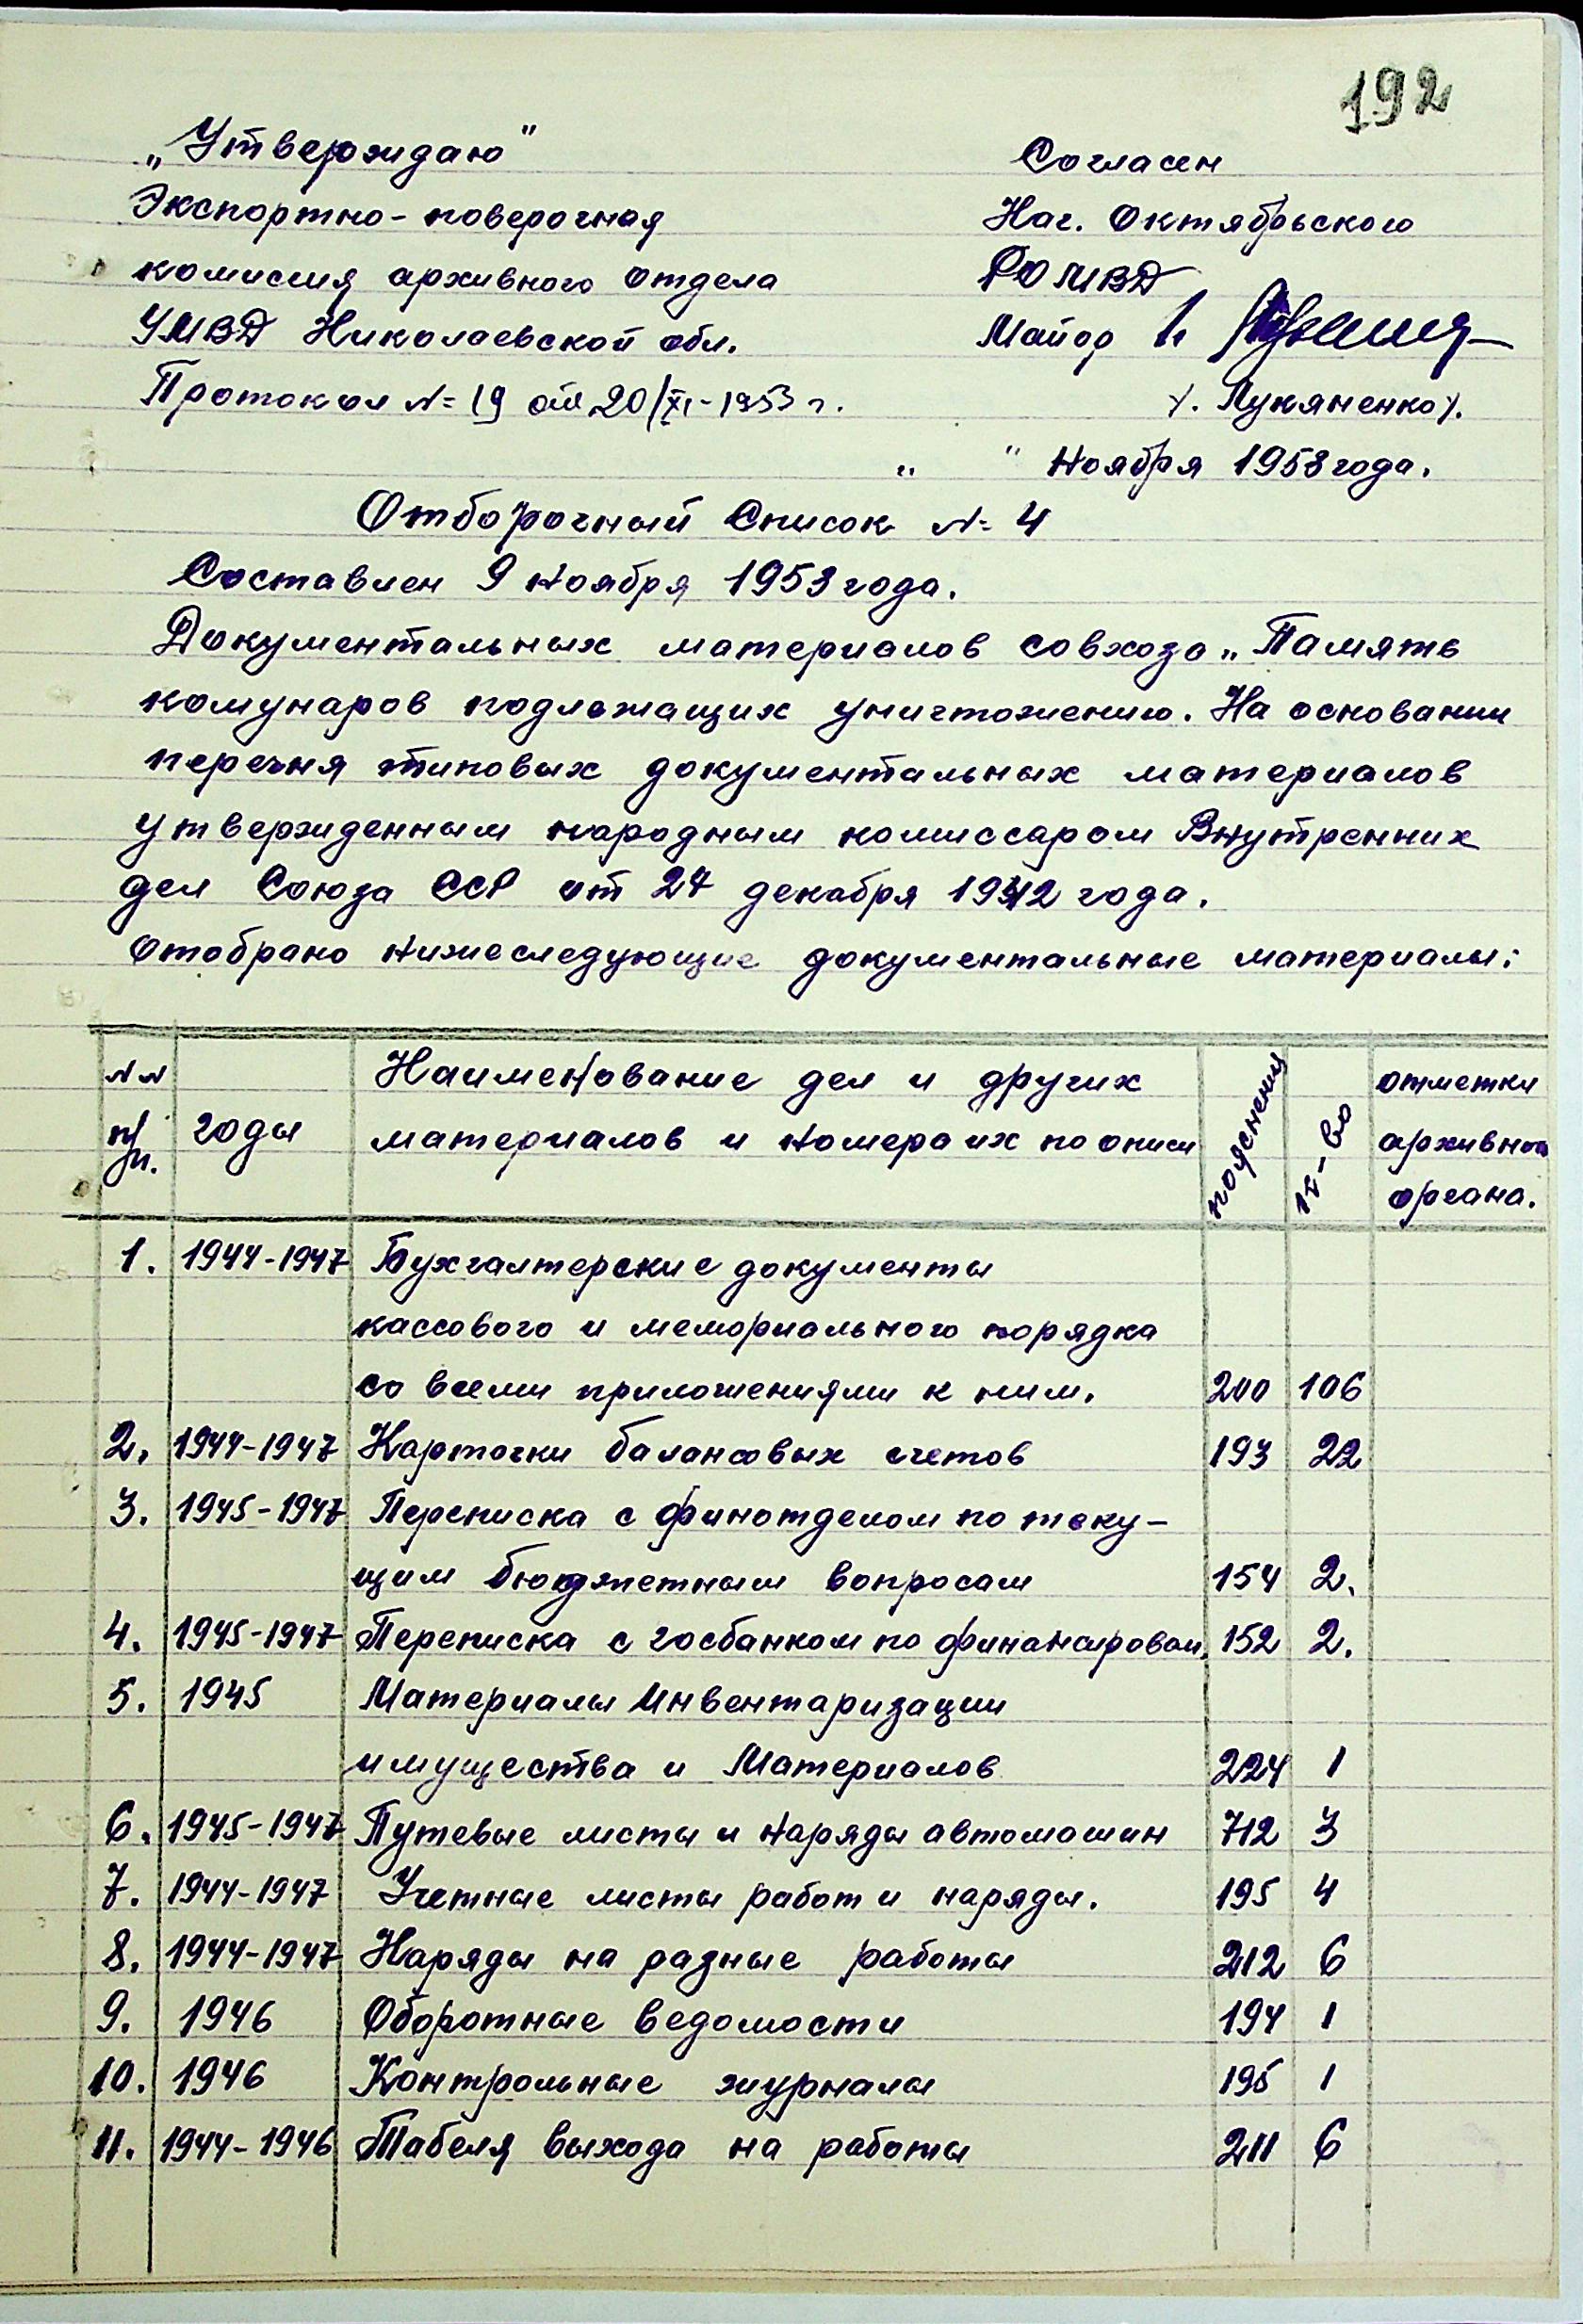 192
„Утверждаю"
Экспортно-поверочная
комиссия архивного отдела
УМВД Николаевской обл.
Протокол №19 от 20/XI-1953 г.
Согласен
Нач. Октябрьского
РО МВД
Майор
/. Лукяненко/.
" " Ноября 1953 года.
Отборочный Список № 4
Составлен 9 ноября 1953 года.
Документальных материалов совхоза „Память
комунаров подлежащих уничтожению. На основании
перечня типовых документальных материалов
утвержденным народным комиссаром Внутренних
дел Союза ССР от 27 декабря 1942 года.
Отобрано нижеследующие документальные материалы:
№№ п/п. годы Наименование дел и других материалов и номера их по описи пояснения к-во отметки архивного органа.
1. 1944-1947 Бухгалтерские документы
кассового и мемориального порядка
со всеми приложениями к ним. 200 106
2. 1944-1947 Карточки балансовых счетов 193 22
3. 1945-1947 Переписка с финотделом по теку-
щим бюджетным вопросам 154 2.
4. 1945-1947 Переписка с госбанком по финансирован. 152 2.
5. 1945 Материалы Инвентаризации
имущества и Материалов 224 1
6. 1945-1947 Путевые листы и наряды автомашин 712 3
7. 1944-1947 Учетные листы работ и наряды. 195 4
8. 1944-1947 Наряды на разные работы 212 6
9. 1946 Оборотные ведомости 194 1
10. 1946 Контрольные журналы 195 1
11. 1944-1946 Табеля выхода на работы 211 6